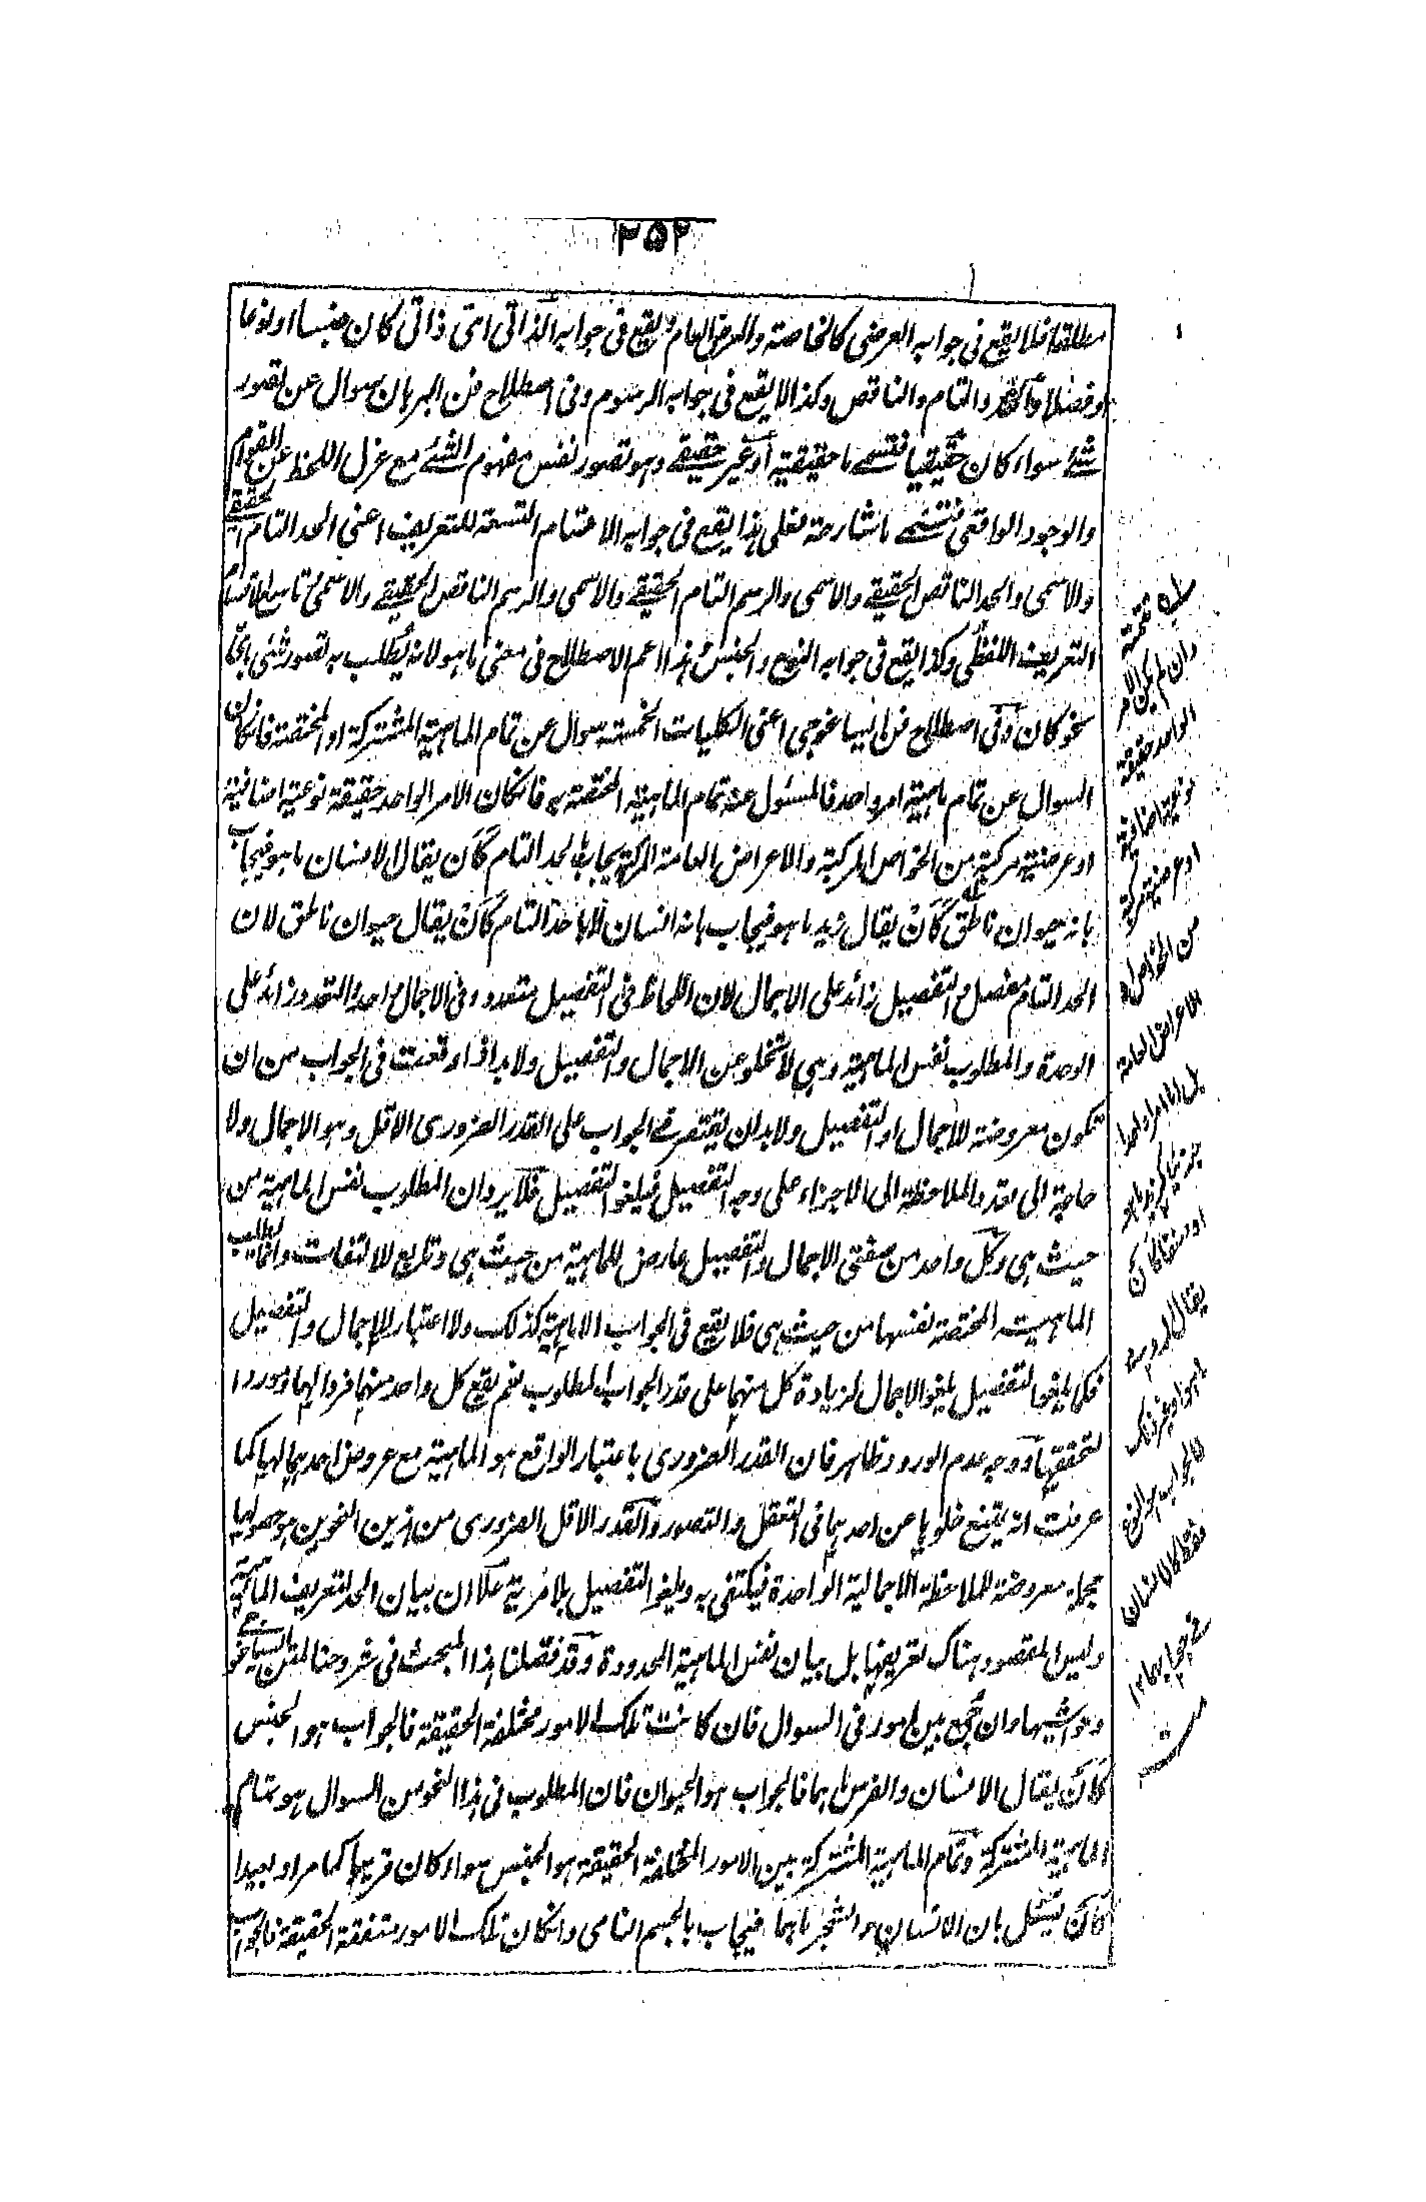 ٢٥٢
مطلقا فلا يقع فى جوابه العرضى كالخاصة والعرض العام ويقع فى جوابه الذاتى اى ذاتى كان جنسا او نوعا
او فصلا والتام والناقص وكذا لا يقع فى جوابه الرسوم وفى اصطلاح فن البرهان سوال عن تصور
شئ سواء كان حقيقيا فتسمى ما حقيقية او غير حقيقى وهو تصور نفس مفهوم الشئ مع عزل اللحظ عن التقوم
والوجود الواقعى فتسمى ما شارحة فعلى هذا يقع فى جوابه الاقسام التسعة للتعريف اعنى الحد التام الحقيقى
والاسمى والحد الناقص الحقيقى والاسمى والرسم التام الحقيقى والاسمى والرسم الناقص الحقيقى والاسمى وتاسع الاقسام
التعريف اللفظى وكذا يقع فى جوابه النوع والجنس وهذا اعم الاصطلاح فى معنى ما هو لانه يطلب به تصور شئ باى
نحو كان وفى اصطلاح فن ايساغوجى اعنى الكليات الخمسة سوال عن تمام الماهية المشتركة او المختصة فان كان
السوال عن تمام ماهية امر واحد فالمسئول عنه تمام الماهية المختصة به فانكان الامر الواحد حقيقة نوعية اضافية
او عرضية مركبة من الخواص المركبة والاعراض العامة المركبة يجاب بالحد التام كأن يقال الانسان ما هو فيجاب
بانه حيوان ناطق كأن يقال زيد ما هو فيجاب بانه انسان لا بالحد التام كأن يقال حيوان ناطق لان
الحد التام مفصل والتفصيل زائد على الاجمال لان اللحاظ فى التفصيل متعدد وفى الاجمال واحد والتعدد زائد على
الوحدة والمطلوب نفس الماهية وهى لا تخلو عن الاجمال والتفصيل ولا بد اذا وقعت فى الجواب من ان
تكون معروضة للاجمال او التفصيل ولا بد ان يقتصر فى الجواب على القدر الضرورى الاقل وهو الاجمال ولا
حاجة الى تعدد الملاحظة الى الاجزاء على وجه التفصيل فيلغو التفصيل فلا يرد ان المطلوب نفس الماهية من
حيث هى وكل واحد من صفتى الاجمال والتفصيل عارض للماهية من حيث هى وتابع للالتفات وانما يطلب
الماهية المختصة نفسها من حيث هى فلا يقع فى الجواب الا الماهية كذلك ولا اعتبار للاجمال والتفصيل
فكما يلغو التفصيل يلغو الاجمال لزيادة كل منهما على قدر الجواب المطلوب نعم يقع كل واحد منهما فردا لهما وموردا
لتحققها ووجه عدم الورود ظاهر فان القدر الضرورى باعتبار الواقع هو الماهية مع عروض احدهما لها كما
عرفت انه يمتنع خلوها عن احدهما فى التعقل والتصور والقدر الاقل الضرورى من هذين النحوين هو حصولها
مجملة معروضة للملاحظة الاجمالية الواحدة فيكتفى به ويلغو التفصيل بلا مرية علا ان بيان الحد لتعريف الماهية
وليس المقصود هناك تعريفها بل بيان نفس الماهية المحدودة وقد فصلنا هذا المبحث فى شروحنا لمتن ايساغوجى
وحواشيها وان جمع بين امور فى السوال فان كانت تلك الامور مختلفة الحقيقة فالجواب هو الجنس
كأن يقال الانسان والفرس ما هما فالجواب هو الحيوان فان المطلوب فى هذا النحو من السوال هو تمام
الماهية المشتركة وتمام الماهية المشتركة بين الامور المختلفة الحقيقة هو الجنس سواء كان قريبا كما مر او بعيدا
كأن يسئل بان الانسان والشجر ما هما فيجاب بالجسم النامى وانكان تلك الامور متفقة الحقيقة فالجواب
وان لم يكن الامر
الواحد حقيقة
نوعية اضافية
او عرضية مركبة
من الخواص و
الاعراض العامة
بل اما امرا واحدا
جزئيا كزيد ما هو
او صنفا كأن
يقال الرومى
ما هو او غير ذلك
فالجواب هو النوع
فقط كالانسان
فى جوابهما ١٢